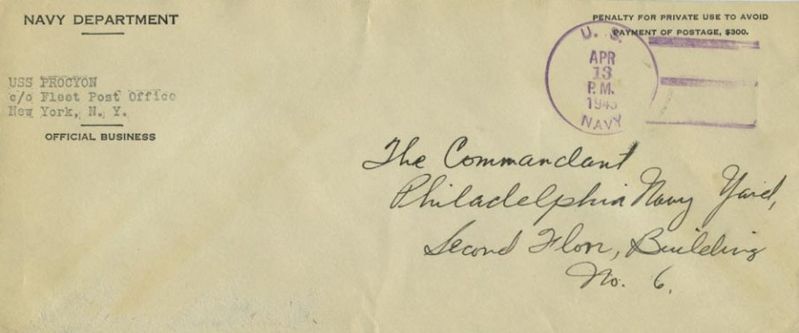 NAVY DEPARTMENT
USS PROCYON
c/o Fleet Post Office
New York, N. Y.
OFFICIAL BUSINESS
PENALTY FOR PRIVATE USE TO AVOID
PAYMENT OF POSTAGE, $300.
U. S.
APR
13
P.M.
1943
NAVY
The Commandant
Philadelphia Navy Yard,
Second Floor, Building
No. 6.